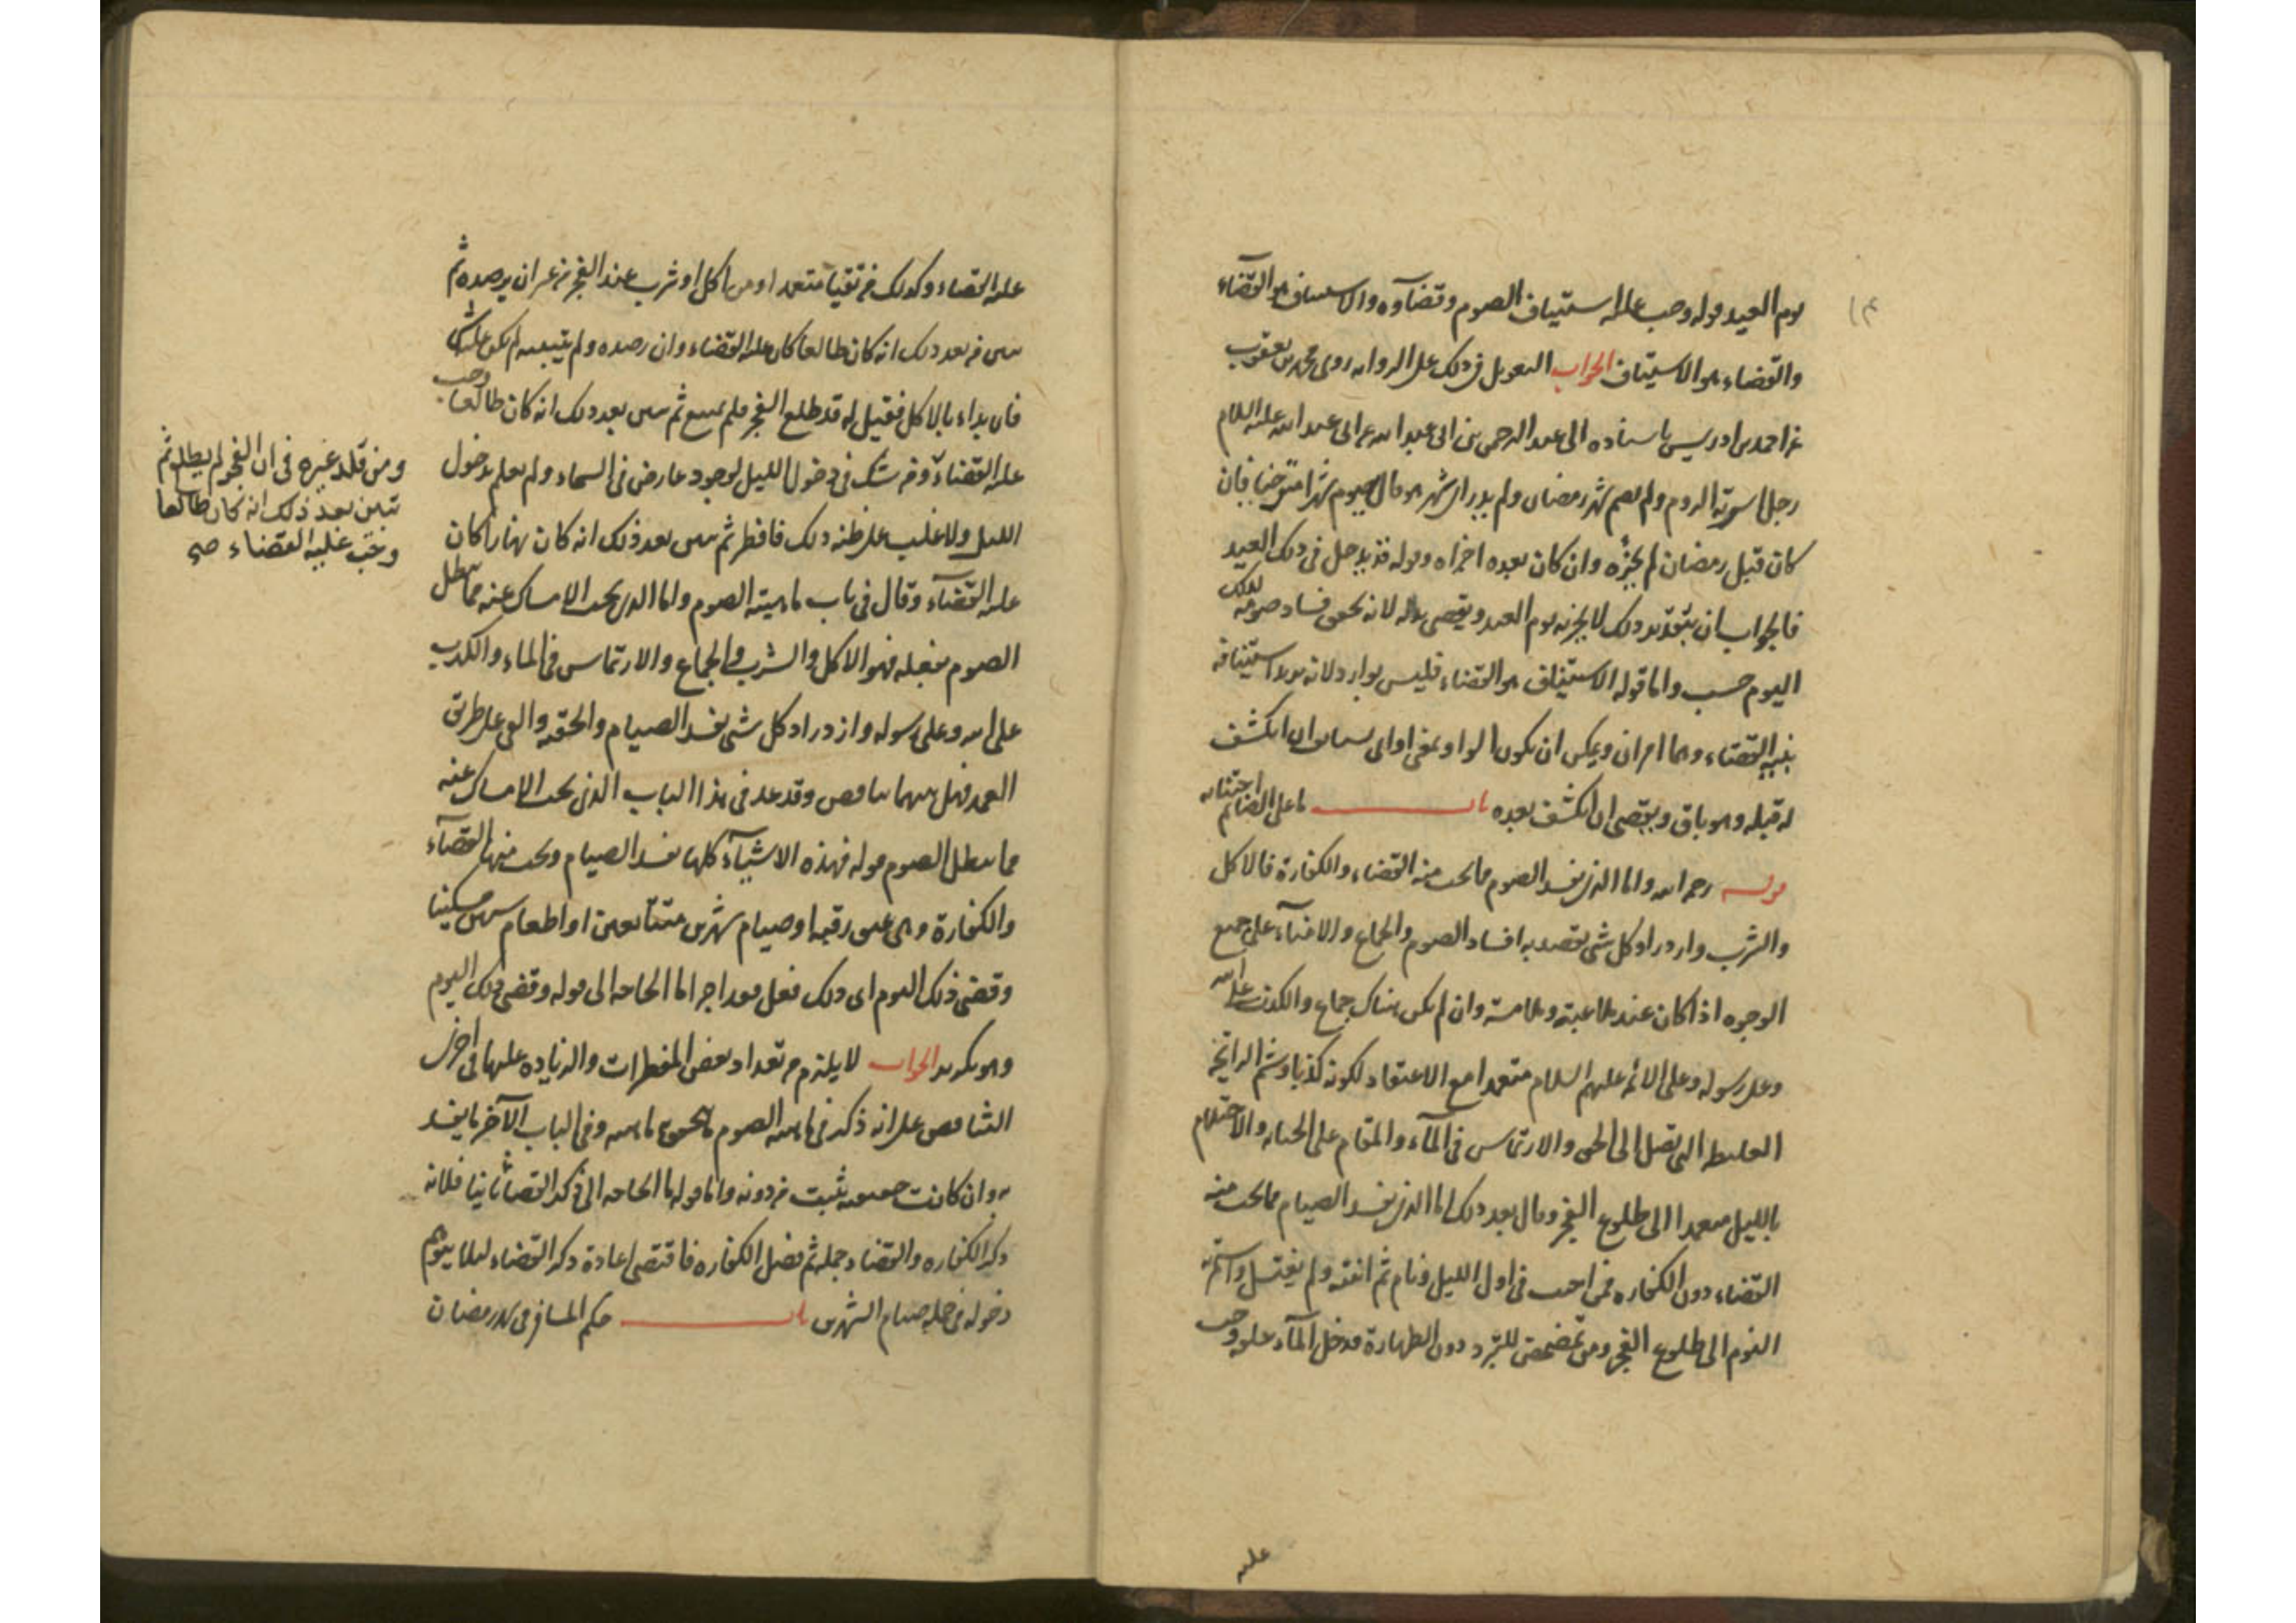 يوم العيد قوله وجب عليه استيناف الصوم وقضاؤه والاستيناف هو القضاء
والقضاء هو الاستيناف الجواب التعويل في ذلك على الرواية روى محمد بن يعقوب
عن احمد بن ادريس باسناده الى عبد الرحمن بن ابي عبد الله عن ابي عبد الله عليه السلام
رجل اسرته الروم ولم يصم شهر رمضان ولم يدر اي شهر هو قال يصوم شهرا يتوخاه فان
كان قبل رمضان لم يجزه وان كان بعده اجزاه وقوله قد يدخل في ذلك العيد
فالجواب ان بتقدير ذلك لا يجزيه يوم العيد ويقضي بدله لانه يختص فساد صومه لذلك
اليوم حسب واما قوله الاستيناف هو القضاء فليس بوارد لانه يريد استينافه
بنية القضاء وهما امران ويمكن ان يكون الواو بمعنى او اي يستانف ان انكشف
له قبله وهو باق ويقضي ان انكشف بعده باب ما على الصائم اجتنابه
قوله رحمه الله واما الذي يفسد الصوم مما يجب منه القضاء والكفارة فالاكل
والشرب وازدراد كل شي يقصد به افساد الصوم والجماع والامناء على جميع
الوجوه اذا كان عند ملاعبة وملامسة وان لم يكن هناك جماع والكذب على الله
وعلى رسوله وعلى الائمه عليهم السلام متعمدا مع الاعتقاد لكونه كذبا وشم الرائحة
الغليظه التي تصل الى الجوف والارتماس في المآء والمقام على الجنابه والاحتلام
بالليل متعمدا الى طلوع الفجر وقال بعد ذلك اما الذي يفسد الصيام مما يجب منه
القضاء دون الكفاره فمن اجنب في اول الليل ونام ثم انتبه ولم يغتسل واستمر به
النوم الى طلوع الفجر ومن تمضمض للتبرد دون الطهارة فدخل المآء حلقه وجب
عليه
عليه القضاء وكذلك من تقيا متعمدا ومن اكل او شرب عند الفجر من غير ان يرصده ثم
تبين من بعد ذلك انه كان طالعا كان عليه القضاء وان رصده ولم يتبينه لم يكن عليه شي
فان بداء بالاكل فقيل له قد طلع الفجر فلم يمتنع ثم تبين بعد ذلك انه كان طالعا وجب
عليه القضاء ومن شك في دخول الليل لوجود عارض في السماء ولم يعلم بدخول
الليل ولا غلب على ظنه ذلك فافطر ثم تبين بعد ذلك انه كان نهارا كان
عليه القضآء وقال في باب ماهية الصوم واما الذي يجب الامساك عنه مما يبطل
الصوم بفعله فهو الاكل والشرب والجماع والارتماس في الماء والكذب
على الله وعلى رسوله وازدراد كل شي يفسد الصيام والحقنه والقي على طريق
العمد فهل بينهما تناقض وقد عد في هذا الباب الذي يجب الامساك عنه
مما يبطل الصوم قوله فهذه الاشيآء كلها تفسد الصيام ويجب منها القضآء
والكفارة وهي عتق رقبة او صيام شهرين متتابعين او اطعام ستين مسكينا
وقضى ذلك اليوم اي ذلك فعل فقد اجزا ما الحاجه الى قوله وقضى ذلك اليوم
وهو تكرير الجواب لا يلزم من تعداد بعض المفطرات والزياده عليها في اخرى
التناقض على انه ذكر في ماهية الصوم ماهيته وفي الباب الآخر ما يفسد
به وان كانت حقيقته تثبت من دونه واما قوله ما الحاجه الى ذكر القضاء ثانيا فلانه
ذكر الكفاره والقضاء جملة ثم فصل الكفاره فاقتضى اعادة ذكر القضاء لئلا يتوهم
دخوله في جملة صيام الشهرين باب حكم المسافر في شهر رمضان
ومن قلد غيره في ان الفجر لم يطلع ثم
تبين بعد ذلك انه كان طالعا
وجب عليه القضاء صح